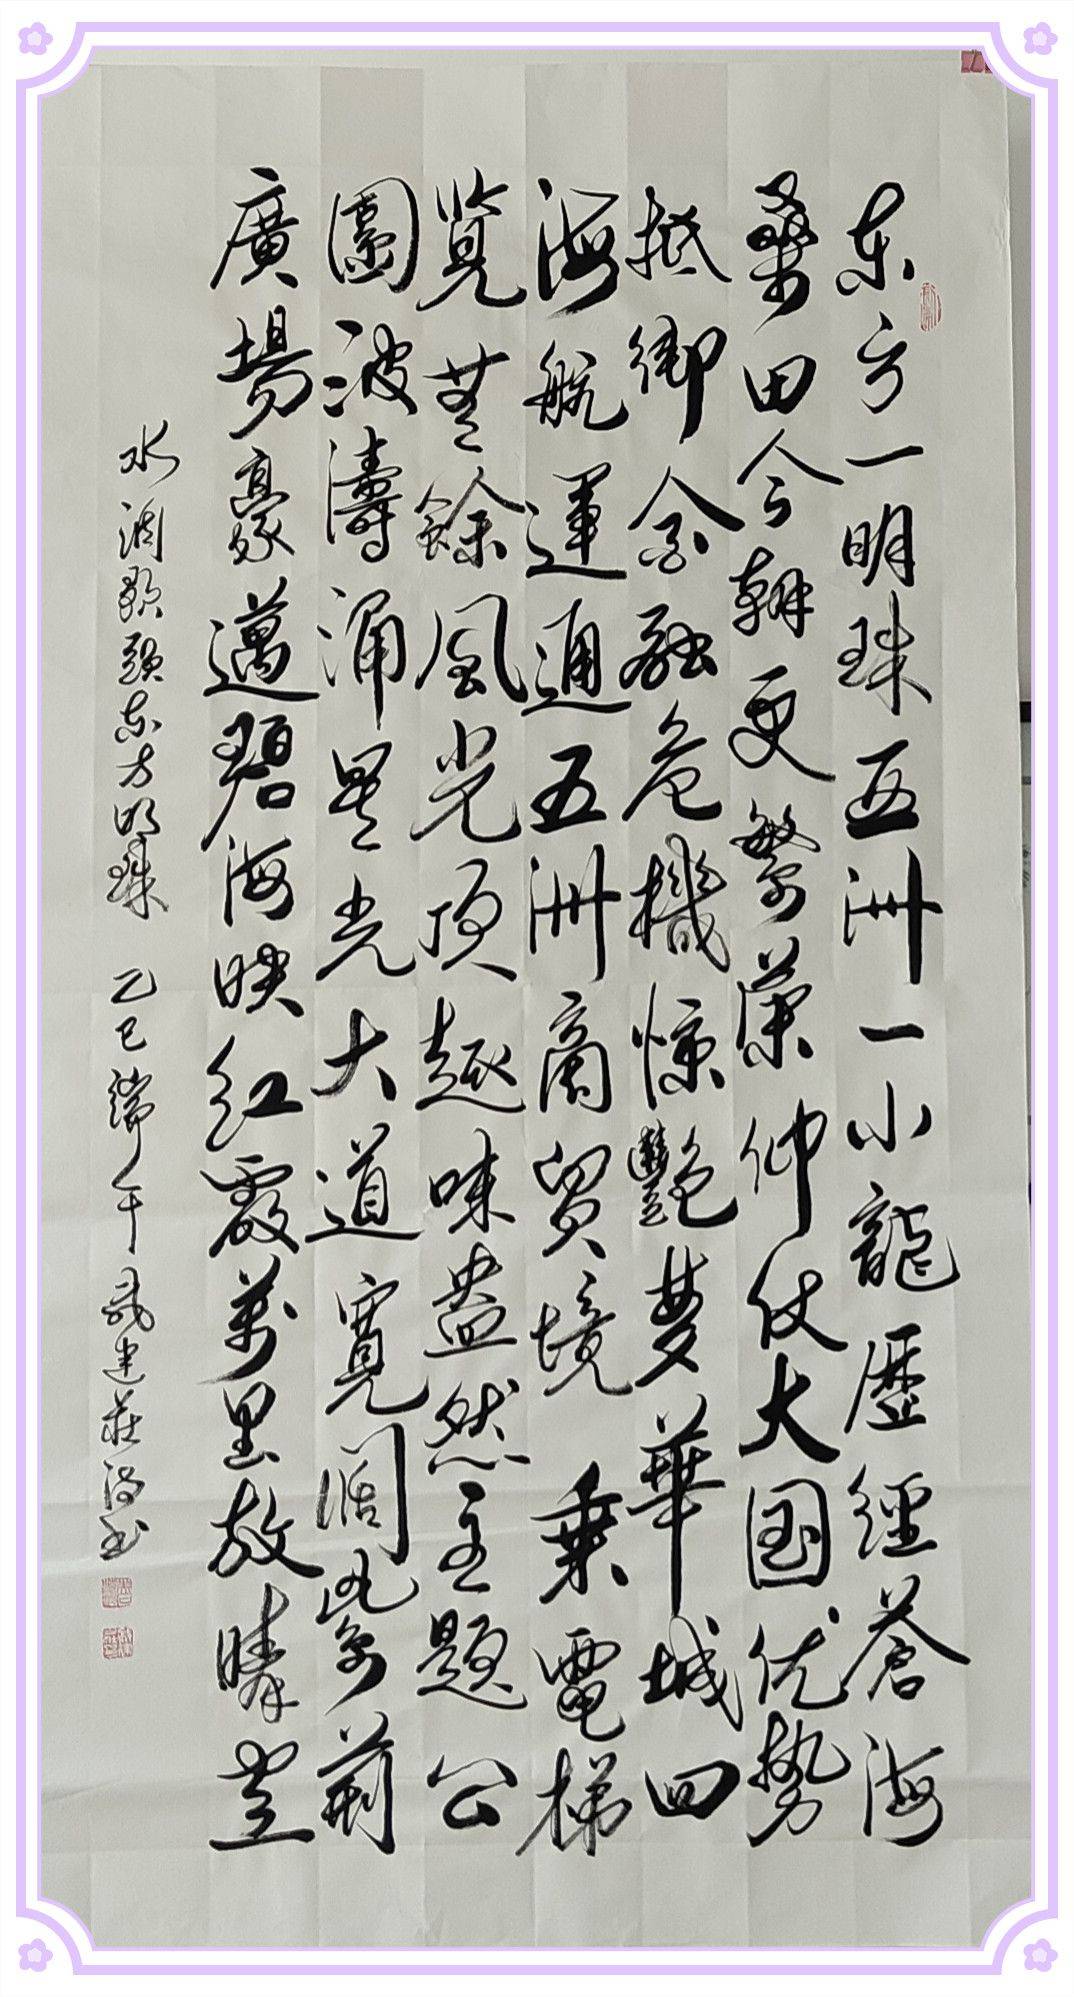 东方一明珠亚洲一小龍歷經蒼海
桑田今朝更繁荣仰仗大国优势
抵御金融危機惊艷梦華城四
海航運通五洲商贸境乗電梯
览芸餘風光顶趣味盎然主題公
園波濤涌星光大道寬阔紫荊
廣場豪邁碧海映红霞萬里放晴空
水调歌题东方明珠 乙巳端午 建莊 书